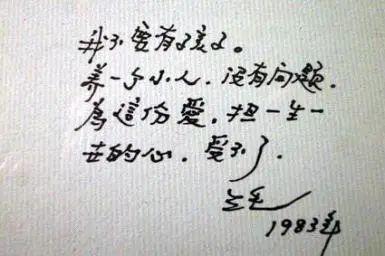 我不要有了孩子。
养一个小人．没有问题．
為這份愛．担一生一
世的心．受不了．
三毛
1983年